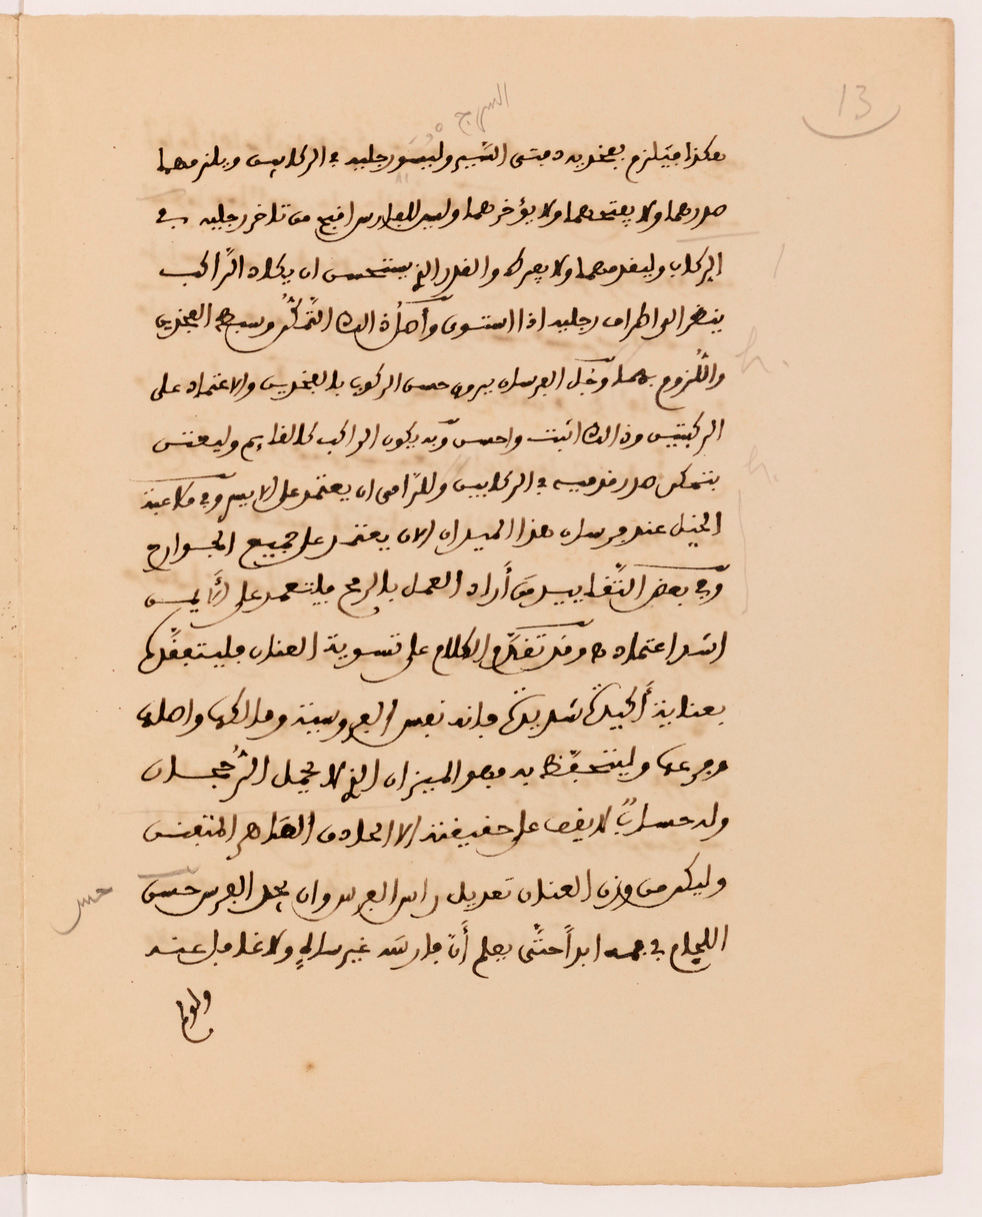 13
السرج
هكذا فيلزم بفخذيه دفتي السَّير وليسوّ رجليه في الركابين ويلزمهما
صدرهما ولا يفتحهما ولا يؤخرهما وليس للفارس اقبح من تاخر رجليه في
الركاب وليقدمهما ولا يفرط والقدر الذي يستحسن ان يكاد الرَّاكب
ينظر الى اطراف رجليه اذا استوى وأصل ذالك التَّمكُّن وسبطه الفخذين
واللُّزوم بهما وجُل الفرسان يرون حسن الركوب بالفخذين والاعتماد على
الركبتين وذالك اثبت واحسن وبه يكون الراكب كالقايم وليعتن
بتمكن صدر قدميه في الركابين وللرَّامي ان يعتمد على الايسر وفي ملاعبة
الخيل عند فرسان هذا الميدان الان يعتمد على جميع الجوارح
وفي بعض التَّقاييد من أراد العمل بالرمح فليتعمد على الأيمن
اشد اعتماده وقد تقدَّم الكلام على تسوية العنان فليتفقَّد
بعناية أكيدة شديدة فانه نفس الفروسية وملاكها واصلها
وفرعها وليتحفَّظ به فهو الميزان الذي لا يحمل الرُّجحان
وله حسابٌ لا يقف على حقيقته الا الحاذق الماهر المتقن
وليكن من وزن العنان تعديل راس الفرس وان يجد الفرس حسن
حس
اللجام في فمه ابداً حتَّى يعلم أنَّ فارسَه غير ساهٍ ولا غافل عنه
ولو